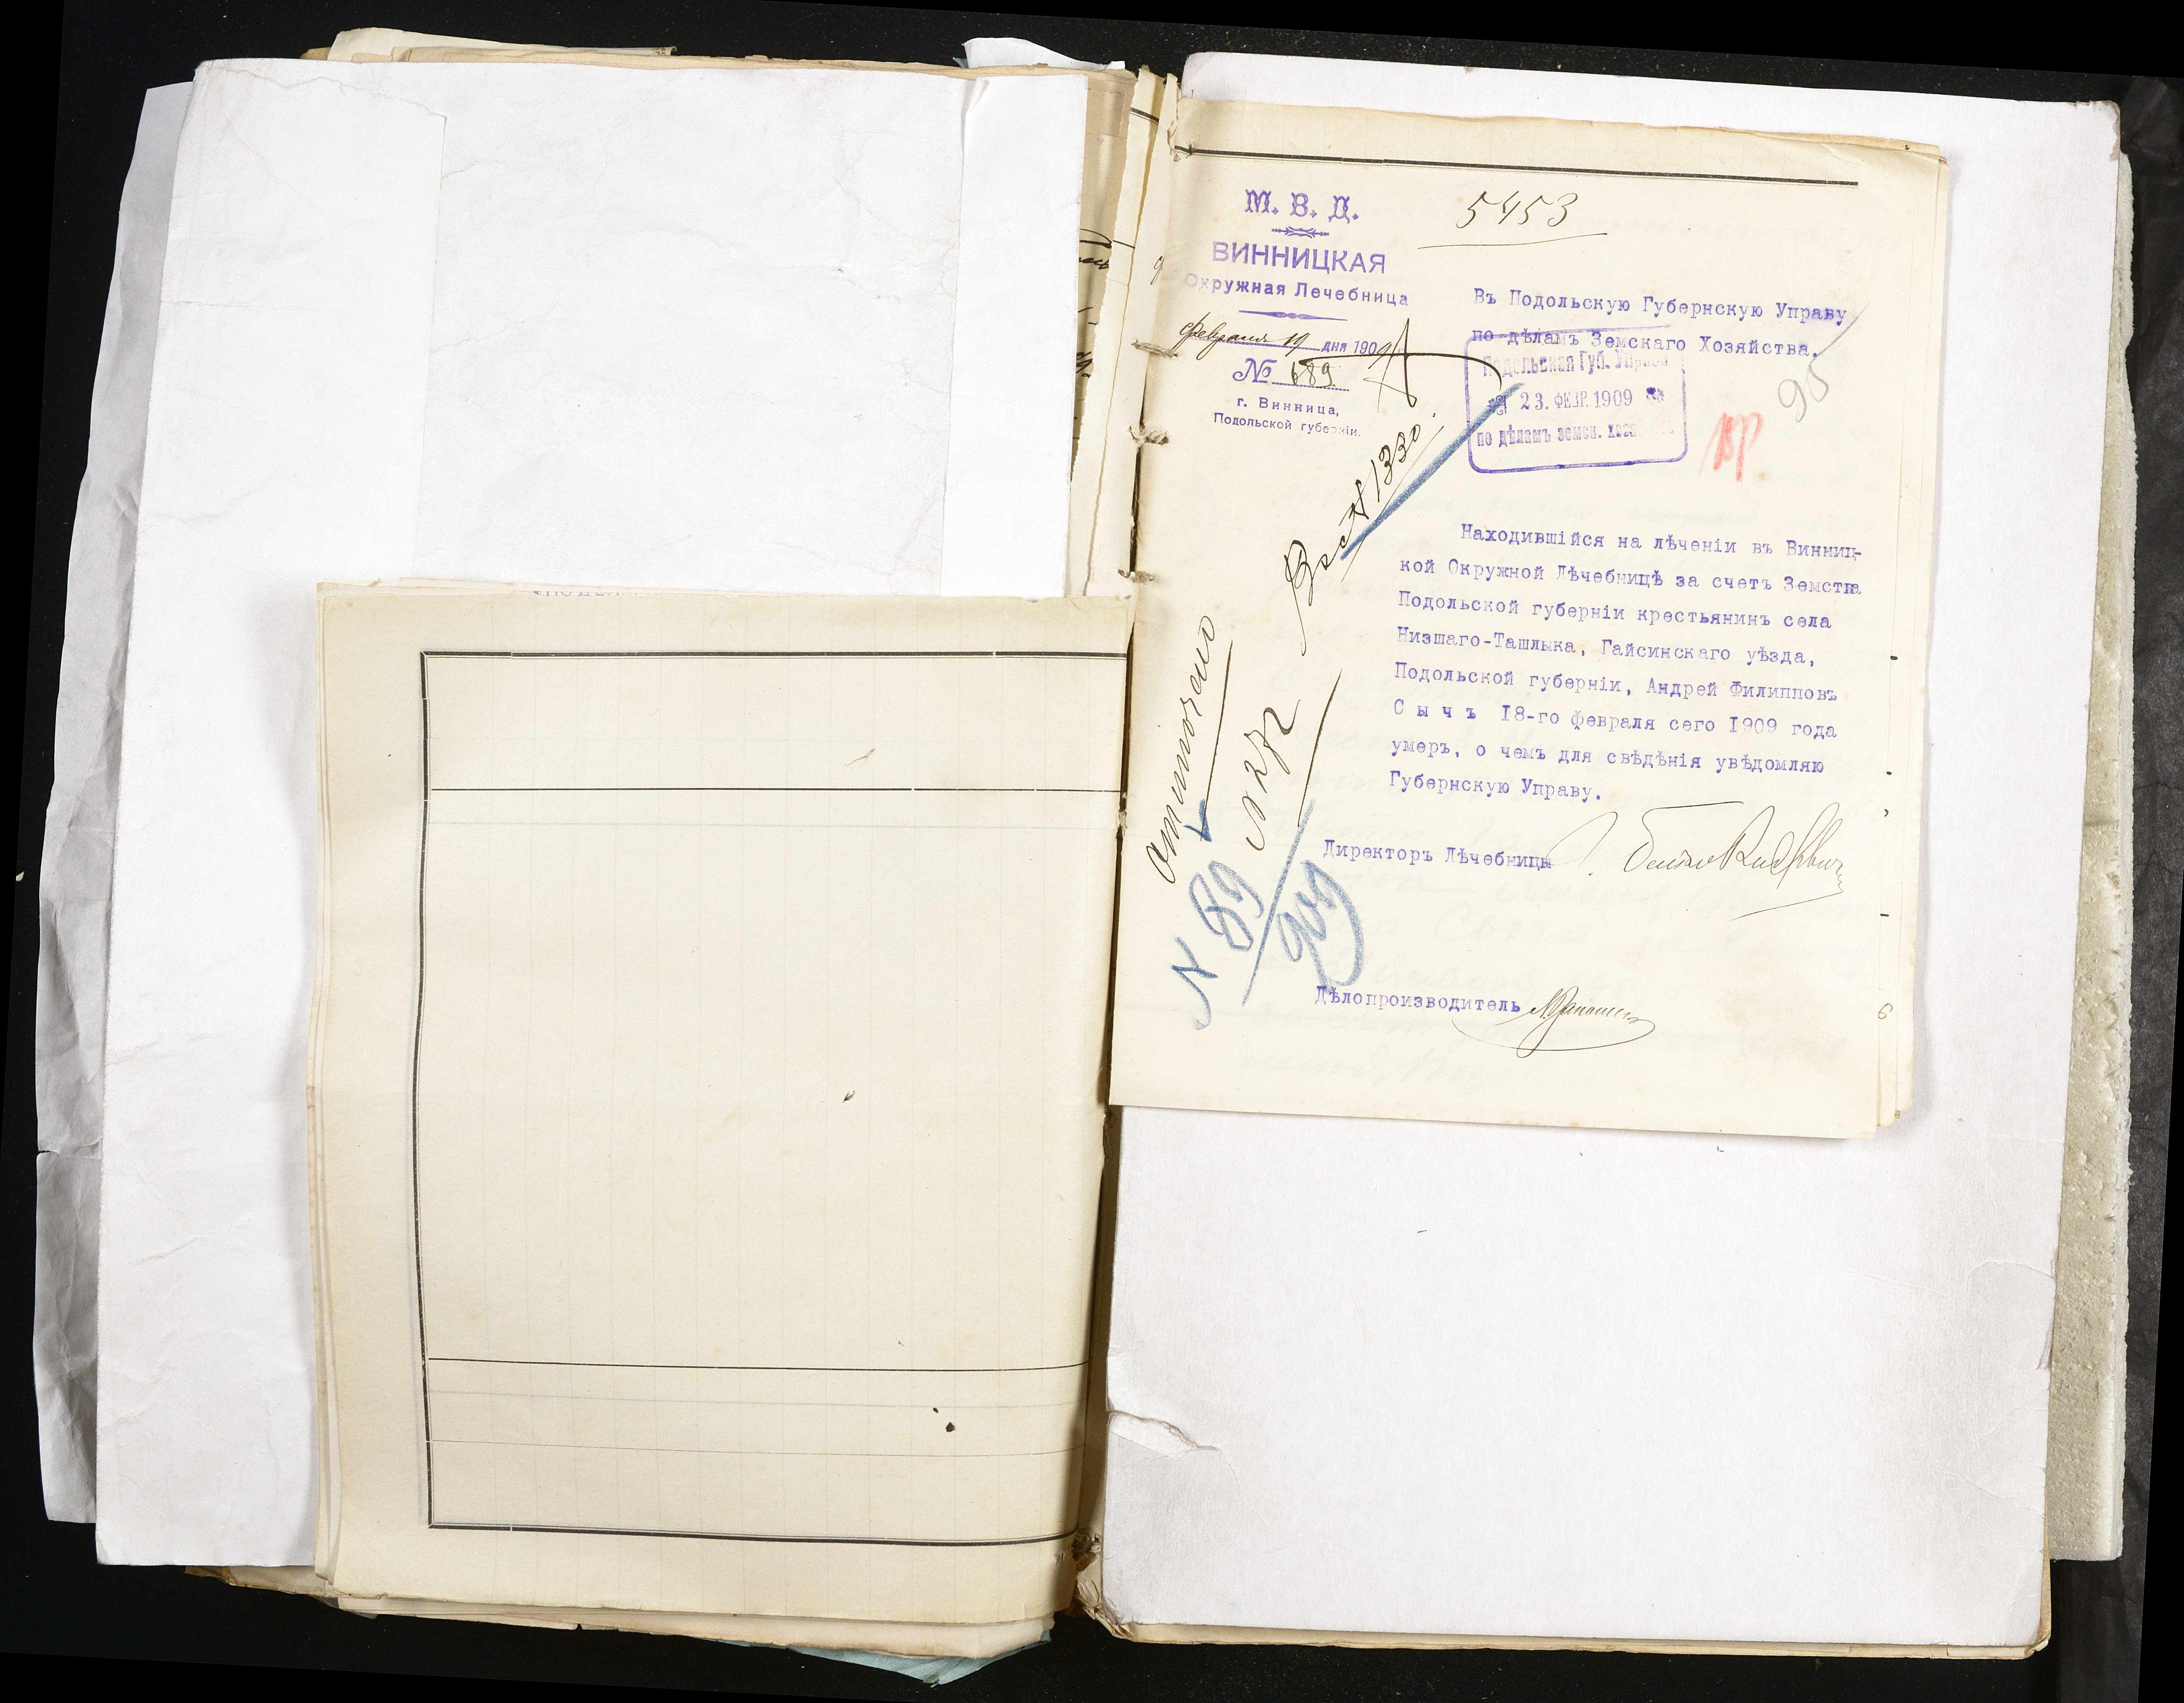 М. В. Д.
ВИННИЦКАЯ
Окружная Лечебница
февраля 19 дня 1909
№ 689.
г. Винница,
Подольской губерніи.
5453
Въ Подольскую Губернскую Управу
по дѣламъ Земскаго Хозяйства.
95
Подольская Губ. Управа
23. ФЕВР. 1909
по дѣламъ земск. хозяйства
№ 1330
Находившійся на лѣченіи въ Винниц-
кой Окружной Лѣчебницѣ за счетъ Земства
Подольской губерніи крестьянинъ села
Низшаго-Ташлыка, Гайсинскаго уѣзда,
Подольской губерніи, Андрей Филипповъ
С ы ч ъ 18-го февраля сего 1909 года
умеръ, о чемъ для свѣдѣнія увѣдомляю
Губернскую Управу.
отмѣчено
N 272
N 89
909
Директоръ Лѣчебницы
Дѣлопроизводитель